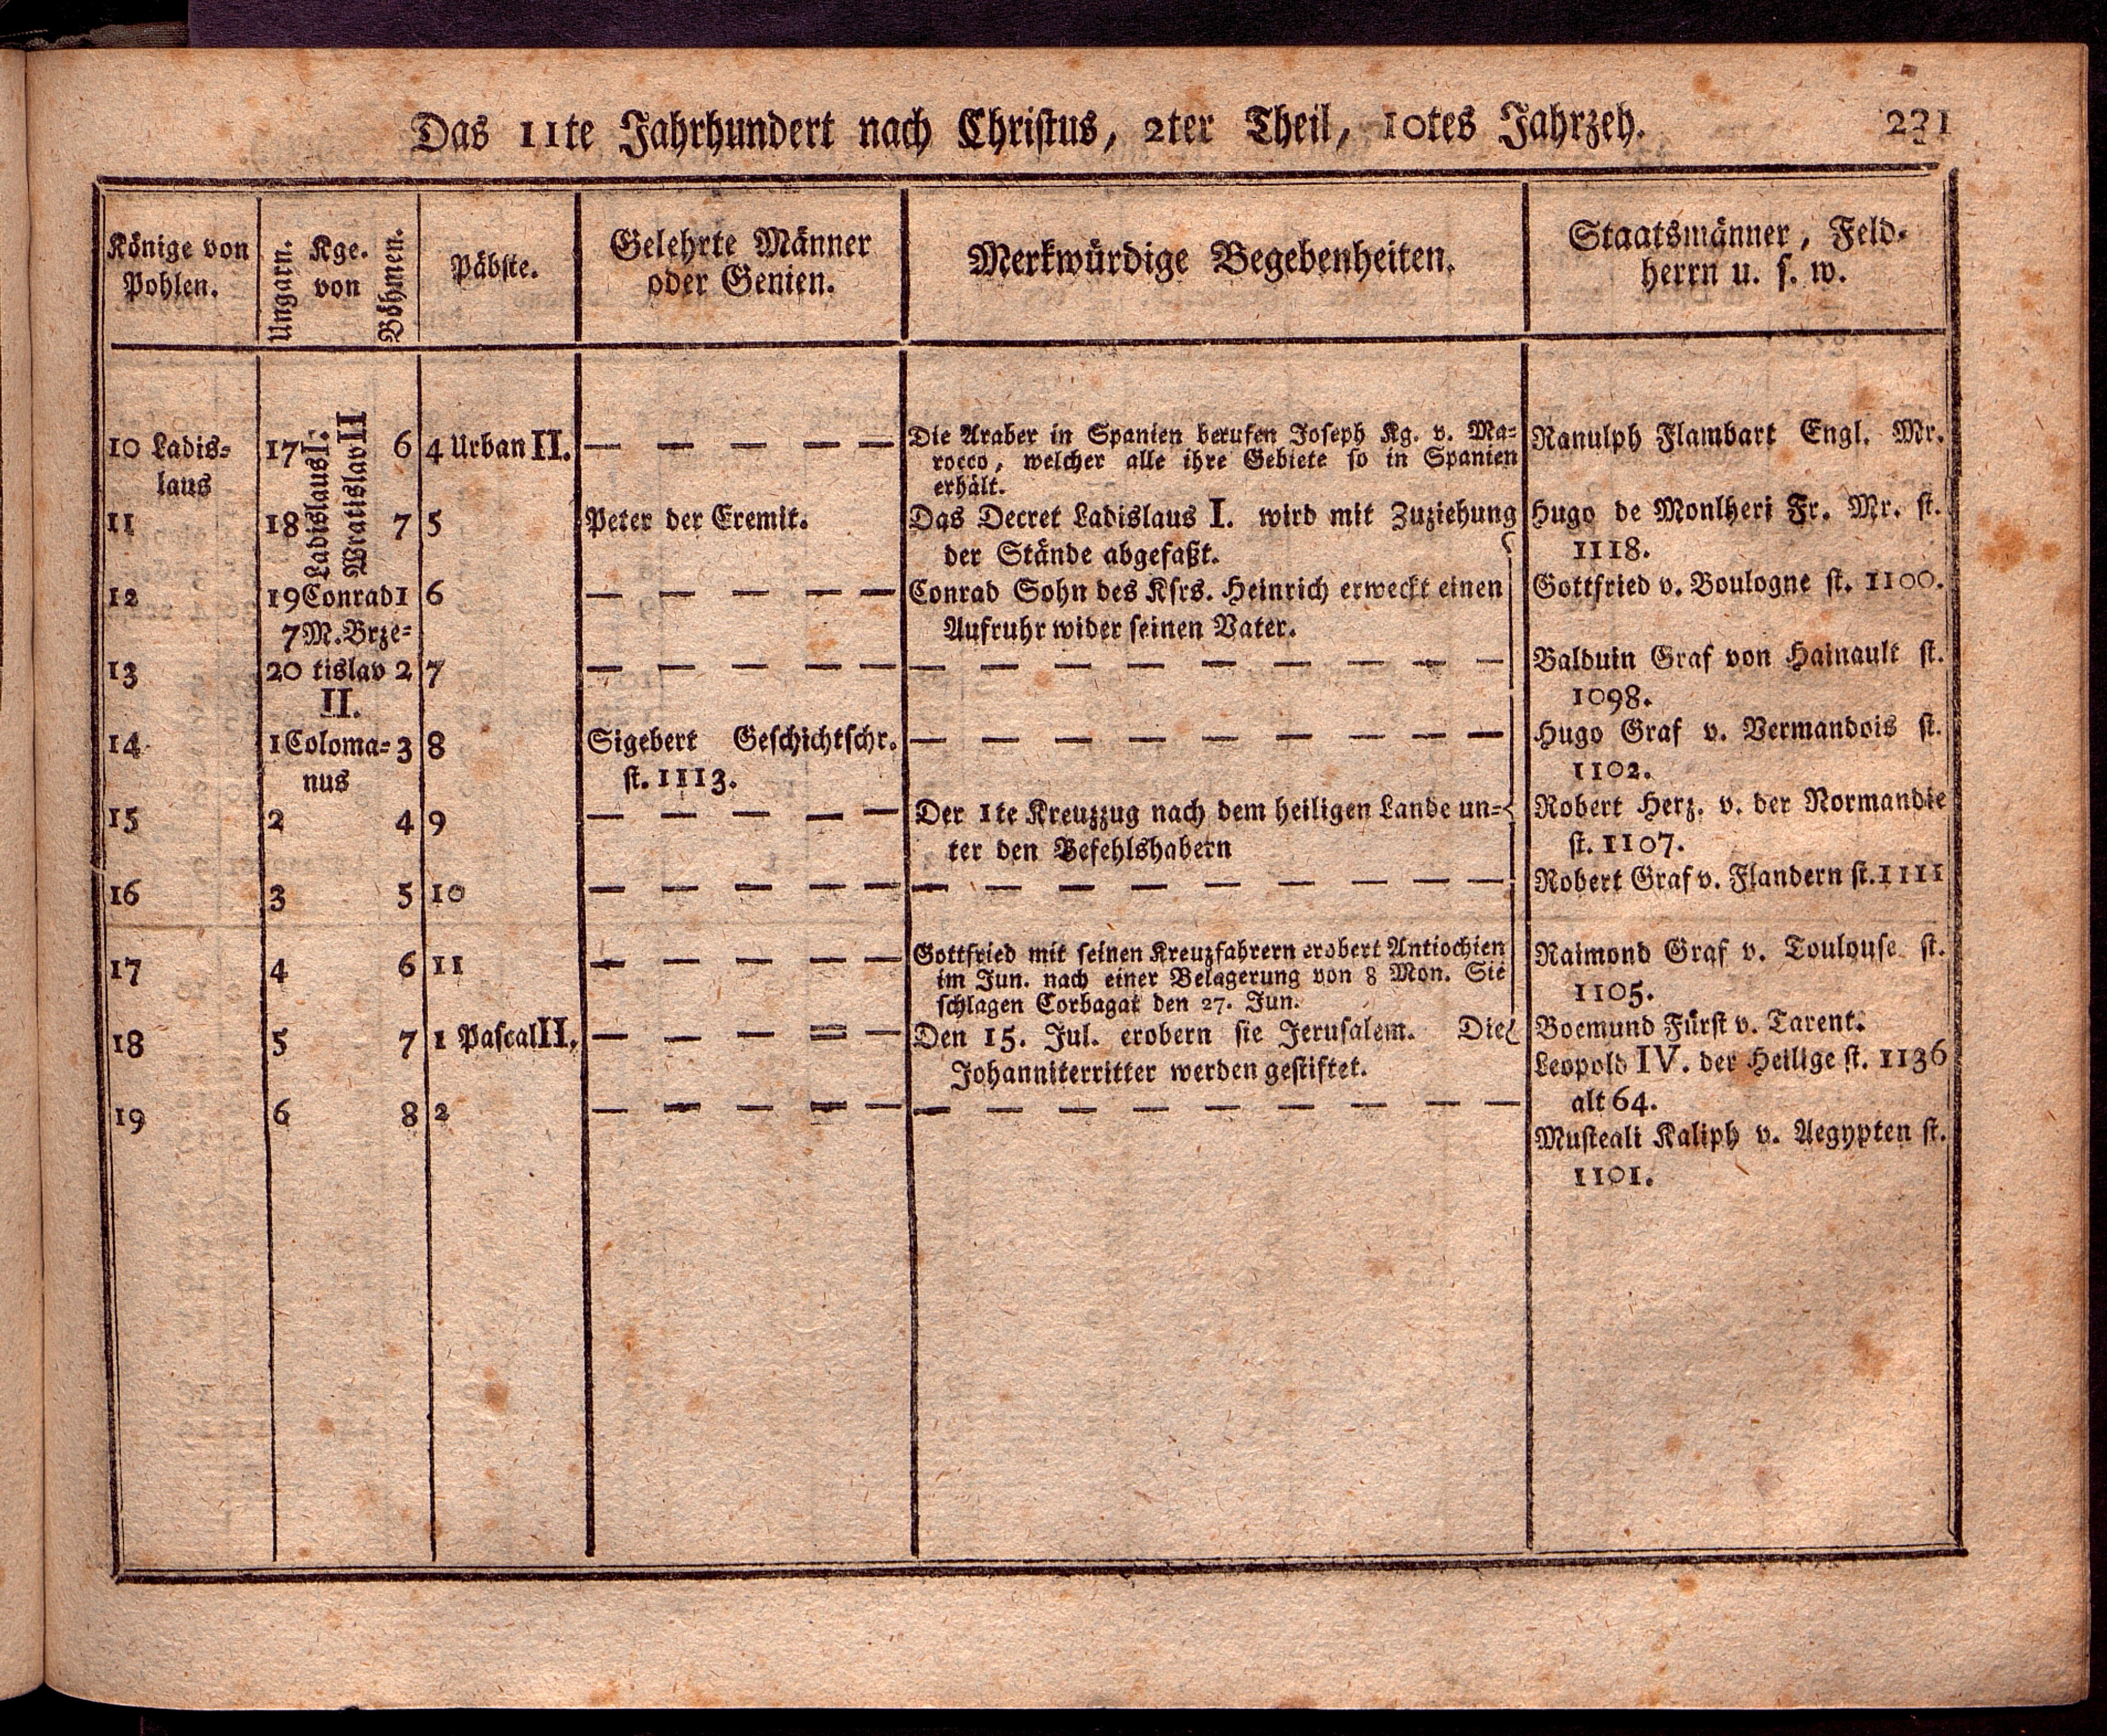 Das 11te Jahrhundert nach Christus, 2ter Theil, 10tes Jahrzeh. 231
Könige von Pohlen.
Ungarn. Kge. von Böhmen.
Päbste.
Gelehrte Männer oder Genien.
Merkwürdige Begebenheiten.
Staatsmänner, Feldherrn u. s. w.
10 Ladis=
laus
17 Ladislaus I. Wratislav II 6
4 Urban II.
— — — — —
Die Araber in Spanien berufen Joseph Kg. v. Ma=
rocco, welcher alle ihre Gebiete so in Spanien
erhält.
Ranulph Flambart Engl. Mr.
11
18 7
5
Peter der Eremit.
Das Decret Ladislaus I. wird mit Zuziehung
der Stände abgefaßt.
Hugo de Monlheri Fr. Mr. st.
1118.
12
19 Conrad 1
7 M. Brze=
6
— — — — —
Conrad Sohn des Ksrs. Heinrich erweckt einen
Aufruhr wider seinen Vater.
Gottfried v. Boulogne st. 1100.
13
20 tislav 2
II.
7
— — — — —
— — — — — — — — —
Balduin Graf von Hainault st.
1098.
14
1 Coloma= 3
nus
8
Sigebert Geschichtschr.
st. 1113.
— — — — — — — — —
Hugo Graf v. Vermandois st.
1102.
15
2 4
9
— — — — —
Der 1te Kreuzzug nach dem heiligen Lande un=
ter den Befehlshabern
Robert Herz. v. der Normandie
st. 1107.
16
3 5
10
— — — — —
— — — — — — — — —
Robert Graf v. Flandern st. 1111
17
4 6
11
— — — — —
Gottfried mit seinen Kreuzfahrern erobert Antiochien
im Jun. nach einer Belagerung von 8 Mon. Sie
schlagen Corbagat den 27. Jun.
Raimond Graf v. Toulouse st.
1105.
18
5 7
1 Pascal II.
— — — — —
Den 15. Jul. erobern sie Jerusalem. Die
Johanniterritter werden gestiftet.
Boemund Fürst v. Tarent.
Leopold IV. der Heilige st. 1136
alt 64.
19
6 8
2
— — — — —
— — — — — — — — —
Musteali Kaliph v. Aegypten st.
1101.